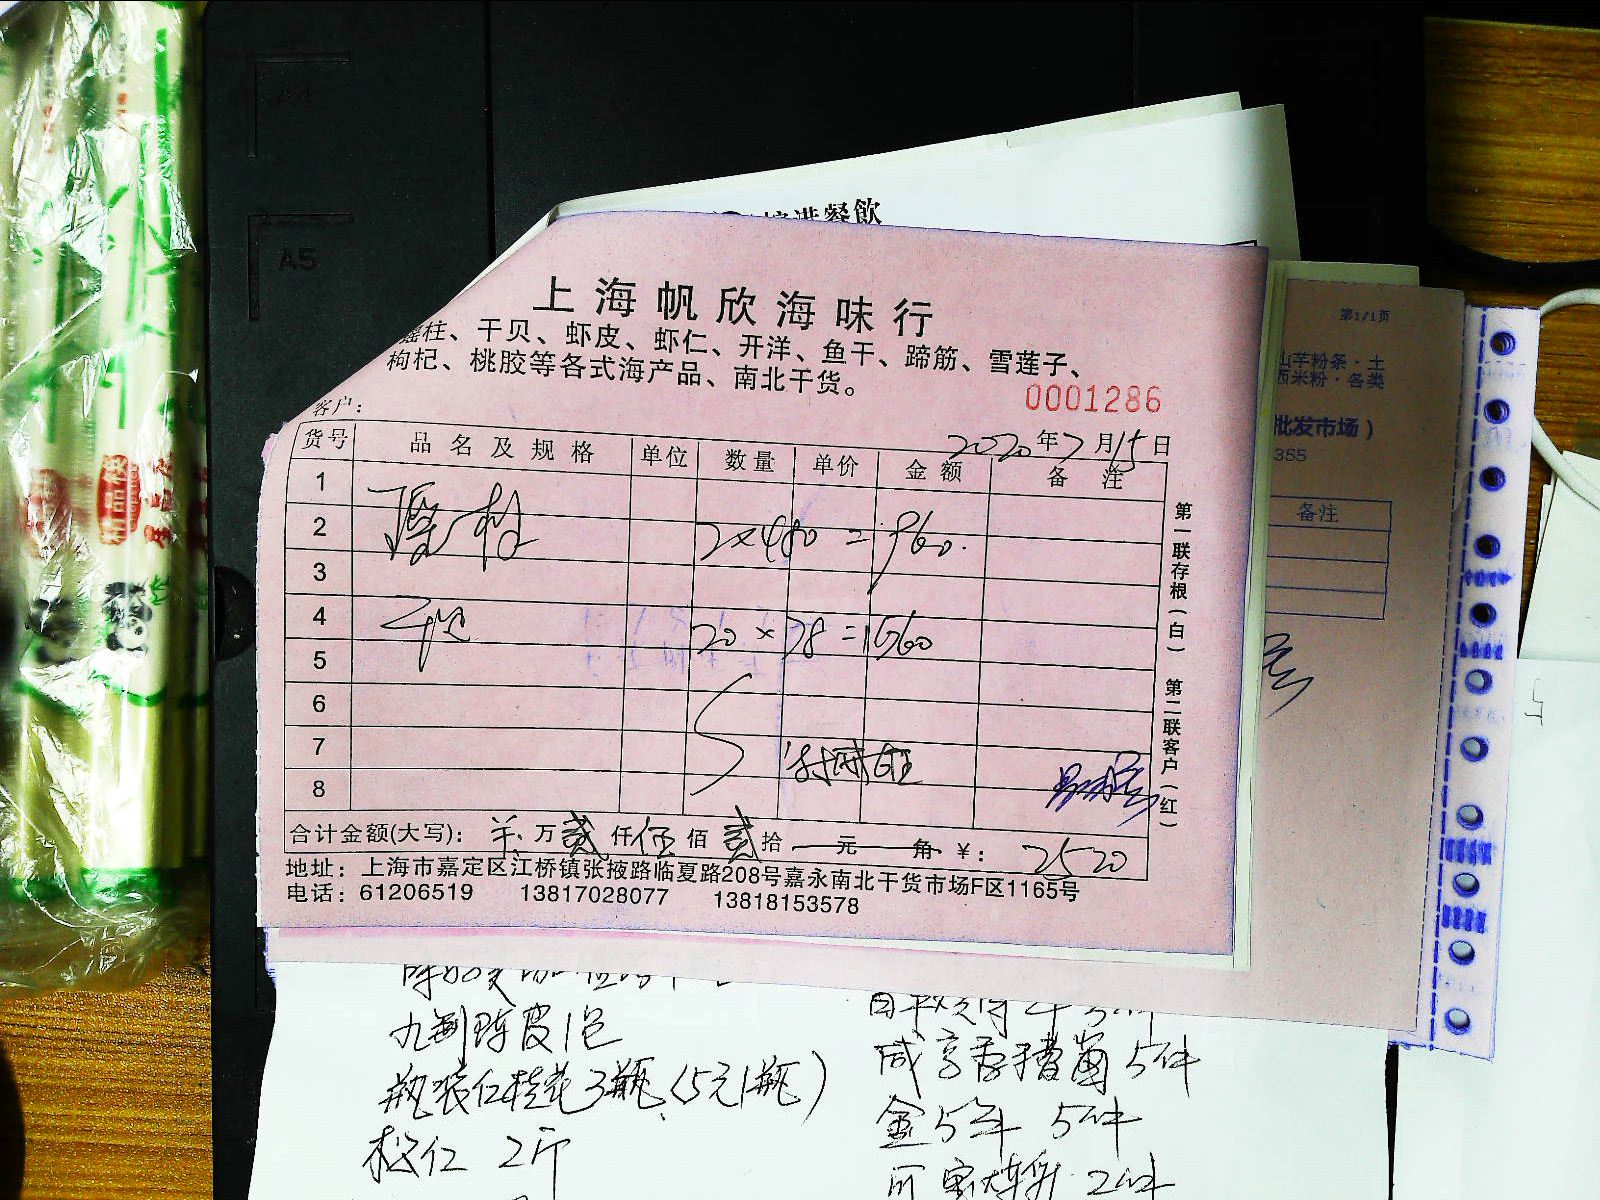 A5
餐飲
上海帆欣海味行
瑶柱、干贝、虾皮、虾仁、开洋、鱼干、蹄筋、雪莲子、
枸杞、桃胶等各式海产品、南北干货。
0001286
客户：
2020年7月15日
货号 品名及规格 单位 数量 单价 金额 备注
1
2 瑶柱 2×480=960.
3
4 20×78=1560
5
6
7
8
合计金额(大写)： 万贰仟伍佰贰拾 元 角 ¥： 2520
地址：上海市嘉定区江桥镇张掖路临夏路208号嘉永南北干货市场F区1165号
电话：61206519 13817028077 13818153578
第一联存根(白) 第二联客户(红)
第1/1页
山芋粉条·土
西米粉·各类
批发市场）
355
备注
九制陈皮1包
瓶装红桂花3瓶(5元1瓶)
松仁 2斤
咸亨香糟卤 5件
金5年 5件